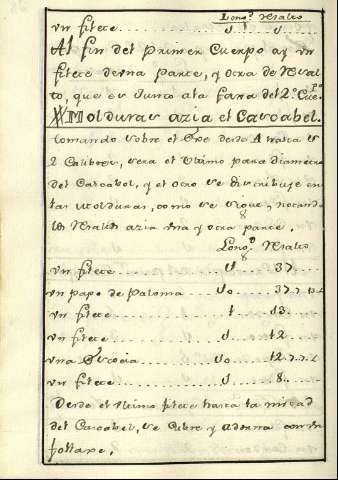 Long.ᵈ Resalto
vn filete
Al fin del Primer Cuerpo ay vn
filete de vna parte, y otra de Resal
to, que es Junto ala faxa del 2.º Cuerpº
Molduras azia el Cascabel.
tomando sobre el Exe desde A hasta
2 Calibres, sera el Ultimo para diametro
del Cascabel, y el otro se distribuye en
las Molduras, como se sigue, notando
los Resaltos azia vna y otra parte.
Long.ᵈ Resalto
vn filete
vn papo de Paloma
vn filete
vn filete
vna Escocia
vn filete 8.
Desde el Ultimo filete hasta la mitad
del Cascabel, se Cubre y adorna con vn
follaxe.